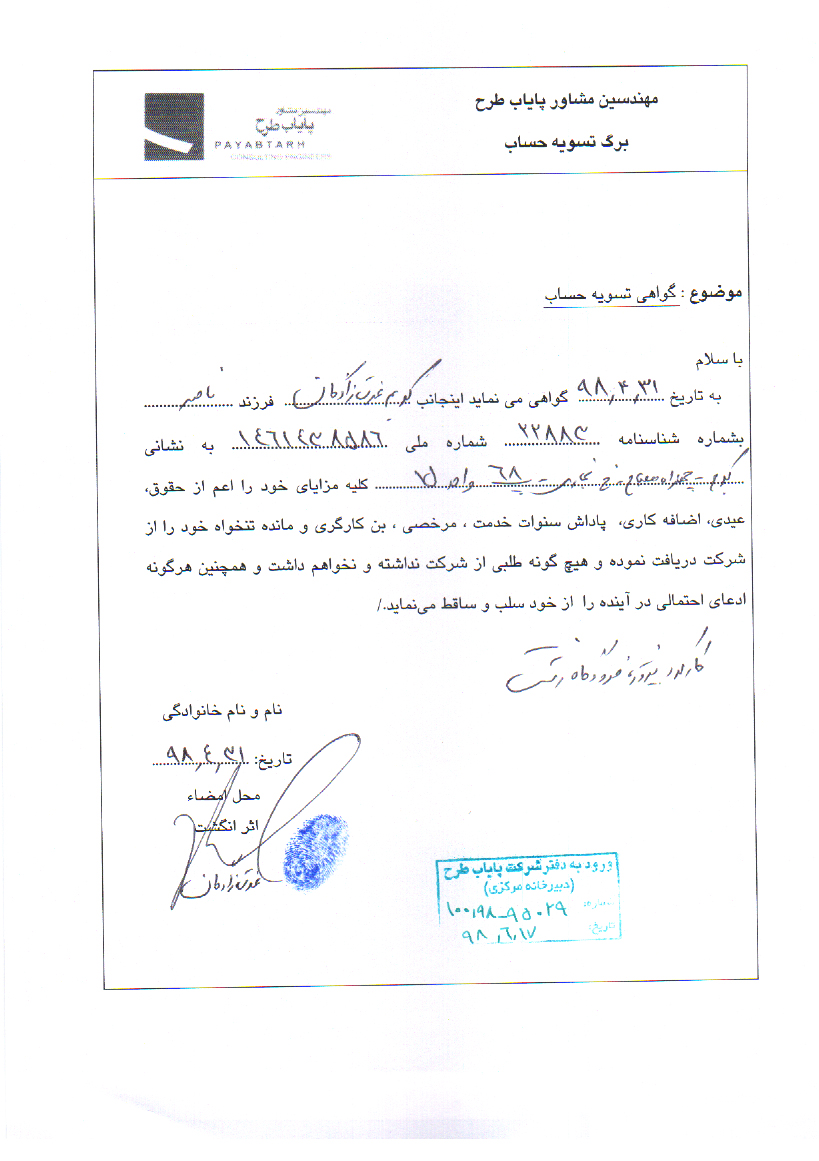 مهندسین مشاور پایاب طرح
برگ تسویه حساب
مهندسین مشاور
پایاب طرح
PAYABTARH
CONSULTING ENGINEERS
موضوع : گواهی تسویه حساب
با سلام
به تاریخ ۹۸,۴,۳۱ گواهی می نماید اینجانب فرزند ناصر
بشماره شناسنامه ۲۲۸۸۳ شماره ملی ۱۴۶۱۴۳۸۵۸۶ به نشانی
۶۸ واحد ۷۵ کلیه مزایای خود را اعم از حقوق،
عیدی، اضافه کاری، پاداش سنوات خدمت ، مرخصی ، بن کارگری و مانده تنخواه خود را از
شرکت دریافت نموده و هیچ گونه طلبی از شرکت نداشته و نخواهم داشت و همچنین هرگونه
ادعای احتمالی در آینده را از خود سلب و ساقط می‌نماید./
فرودگاه رشت
نام و نام خانوادگی
تاریخ: ۹۸,۴,۳۱
محل امضاء
اثر انگشت
ورود به دفتر شرکت پایاب طرح
(دبیرخانه مرکزی)
شماره: ۱۰۰,۹۸-۹۵۰۲۹
تاریخ: ۹۸,۶,۱۷